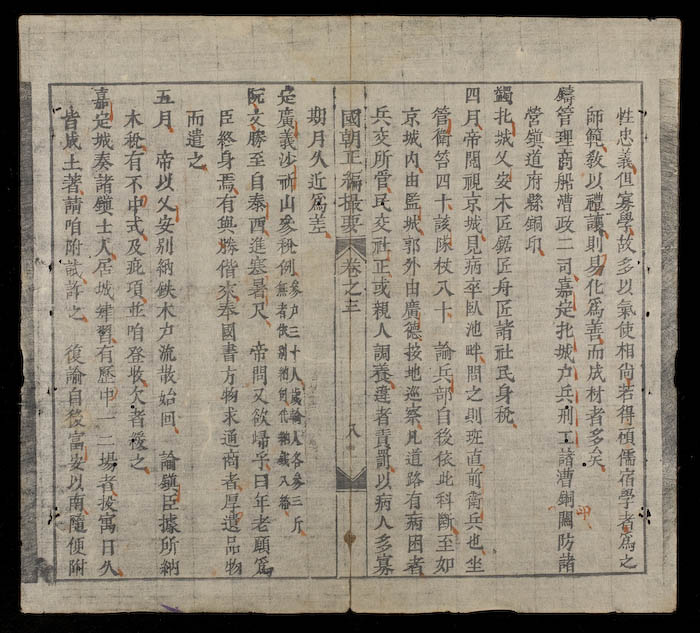 性忠義但寡學故多以氣使相尚若得碩儒宿學者爲之
師範敎以禮讓則易化爲善而成材者多矣
鑄管理商船漕政二司嘉定北城户兵刑工諸曹銅關防諸
營鎮道府縣銅印
蠲北城乂安木匠鋸匠舟匠諸社民身稅
四月帝閱視京城見病卒臥池畔問之則班直前衛兵也坐
管衛笞四十該隊杖八十諭兵部自後依此科斷至如
京城内由監城郭外由廣德按地巡察凡道路有病困者
兵交所管民交社正或親人調養違者責罰以病人多寡
期月久近爲差
國朝正編撮要 卷之三 八
定廣義沙祈山參稅例參户三十人歲輸人各參三斤無者依別納例代納錢人緡
阮文勝至自泰西進寒暑尺 帝問又欲歸乎曰年老願爲
臣終身焉有與勝偕來奉國書方物求通商者厚遺品物
而遣之
五月 帝以乂安別納鉄木户流散始回 諭鎮臣據所納
木稅有不中式及疵項並咱登收欠者後之
嘉定城奏諸鎮士人居城肄習有歷中一二場者投寓日久
皆成土著請咱附試許之 復諭自後富安以南隨便附
印